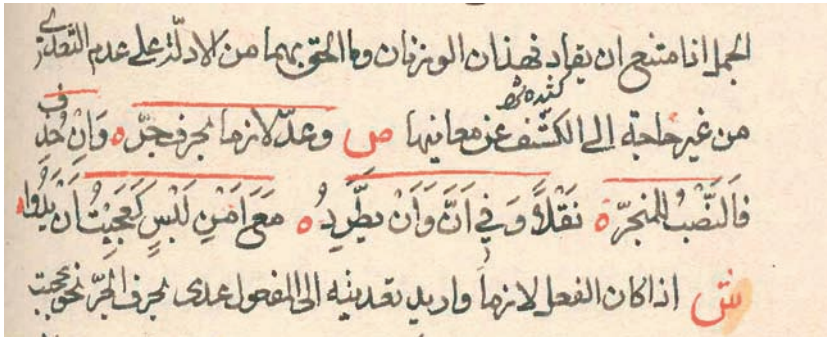 الجمل اذا متنع ان يقاد فهذان الوزنان وما الحق بهما من الادلة على عدم التعدي
من غير حاجة إلى الكشف عن معانيها ص وعدّ لازما بحرف جرّ ه وَاِنْ حُذِف
فَالنَّصْبُ للمنجرّ ه نَقْلًا وَفي اَنَّ وَاَنْ يَطَّرِدُ ه مَعَ اَمْنِ لَبْسٍ كَعَجِبْتُ اَنْ يَدُوا
ش اذا كان الفعل لازما واريد تعديته الى المفعول عدى بحرف الجرّ نحو عجبت